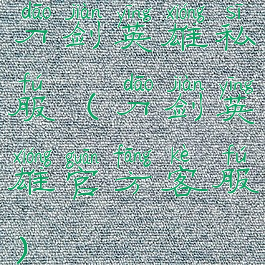 dāo jiàn yīng xióng sī
刀剑英雄私
fú dāo jiàn yīng
服（刀剑英
xióng guān fāng kè fú
雄官方客服
）